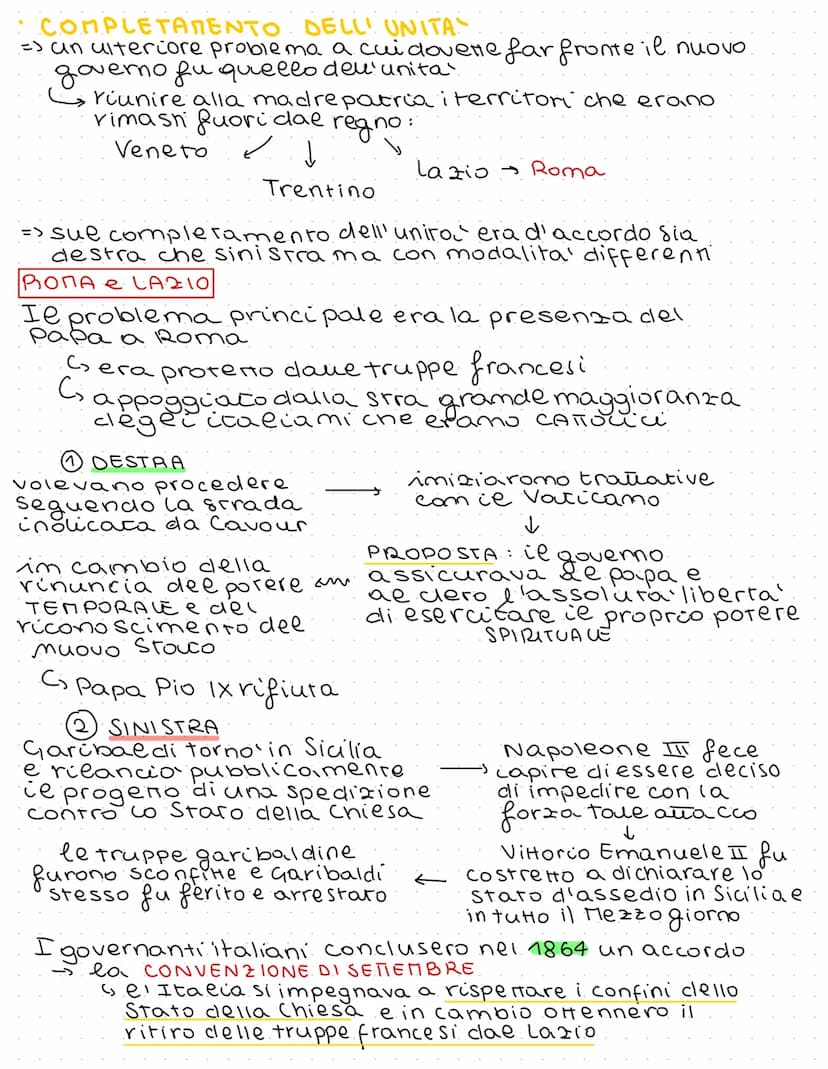 · COMPLETAMENTO DELL'UNITA'
=> un ulteriore problema a cui dovette far fronte il nuovo
governo fu quello dell'unita'
↳ riunire alla madrepatria i territori che erano
rimasti fuori dal regno:
Veneto ↙ ↓ ↘
Lazio → Roma
Trentino
=> sul completamento dell'unita' era d'accordo sia
destra che sinistra ma con modalita' differenti
ROMA e LAZIO
Il problema principale era la presenza del
Papa a Roma
↳ era protetto dalle truppe francesi
↳ appoggiato dalla stra grande maggioranza
degli italiani che erano CATTOLICI
① DESTRA
volevano procedere
seguendo la strada
indicata da Cavour
→ iniziarono trattative
con il Vaticano
↓
PROPOSTA: il governo
assicurava al papa e
al clero l'assoluta' liberta'
di esercitare il proprio potere
SPIRITUALE
in cambio della
rinuncia del potere
TEMPORALE e del
riconoscimento del
nuovo Stato
↳ Papa Pio IX rifiuta
② SINISTRA
Garibaldi torno' in Sicilia
e rilancio' pubblicamente
il progetto di una spedizione
contro lo Stato della Chiesa
→ Napoleone III fece
capire di essere deciso
di impedire con la
forza tale attacco
↓
Vittorio Emanuele II fu
costretto a dichiarare lo
stato d'assedio in Sicilia e
in tutto il Mezzogiorno
← le truppe garibaldine
furono sconfitte e Garibaldi
stesso fu ferito e arrestato
I governanti italiani conclusero nel 1864 un accordo
→ la CONVENZIONE DI SETTEMBRE
↳ l'Italia si impegnava a rispettare i confini dello
Stato della Chiesa e in cambio ottennero il
ritiro delle truppe francesi dal Lazio